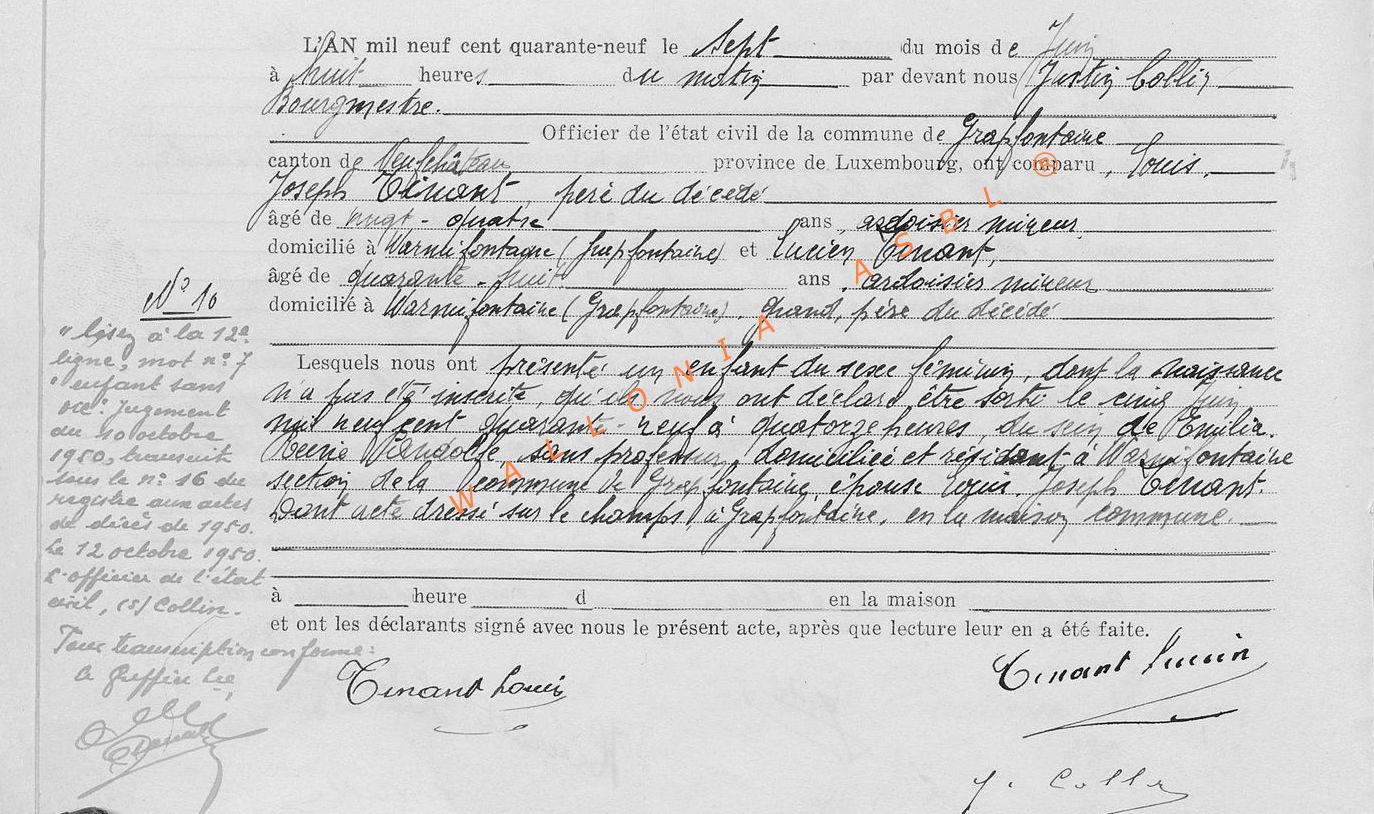 L'AN mil neuf cent quarante-neuf le sept du mois de Juin
à huit heures du matin par devant nous Justin Collin
Bourgmestre.
Officier de l'état civil de la commune de Grapfontaine
canton de Neufchâteau province de Luxembourg, ont comparu, Louis.
Joseph Tinant, père du décédé
âgé de vingt-quatre ans, ardoisier mineur
domicilié à Warmifontaine (Grapfontaine) et Lucien Tinant,
âgé de quarante-huit ans, ardoisier mineur
domicilié à Warmifontaine (Grapfontaine), grand, père du décédé
Lesquels nous ont présenté un enfant du sexe féminin, dont la naissance
n'a pas été inscrite, qu'ils nous ont déclaré être sorti le cinq Juin
mil neuf cent quarante-neuf à quatorze heures, du sein de Emilia.
sans profession, domiciliée et résidant à Warmifontaine
section de la commune de Grapfontaine, épouse Louis. Joseph Tinant.
Dont acte dressé sur le champs, à Grapfontaine, en la maison commune.
à heure d en la maison
et ont les déclarants signé avec nous le présent acte, après que lecture leur en a été faite.
Tinant Louis
Tinant Lucien
J. Collin
N° 10
"lisez à la 12e
ligne, mot n° 7
"enfant sans
vie". Jugement
du 10 octobre
1950, transcrit
sous le n° 16 du
registre aux actes
de décès de 1950.
Le 12 octobre 1950.
L'officier de l'état
civil, (s) Collin.
Pour transcription conforme:
Le Greffier
WALLONIA ASBL ®